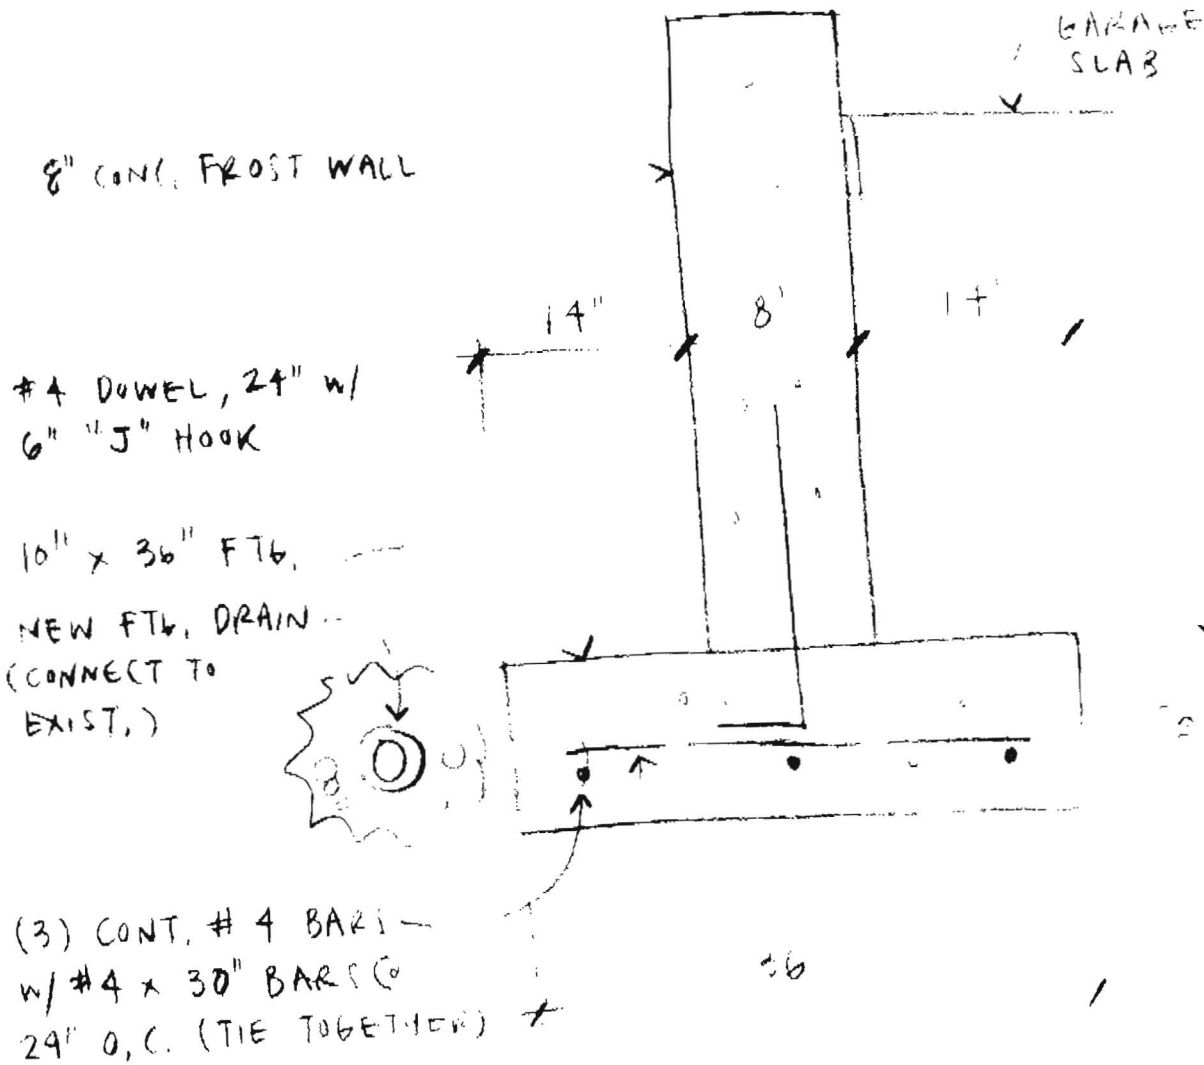 GARAGE
SLAB
8" CONC. FROST WALL
14"
8'
14
#4 DOWEL, 24" W/
6" "J" HOOK
10" x 36" FTG.
NEW FTG. DRAIN
(CONNECT TO
EXIST.)
(3) CONT. # 4 BARS
W/ #4 x 30" BARS @
24" O.C. (TIE TOGETHER)
36